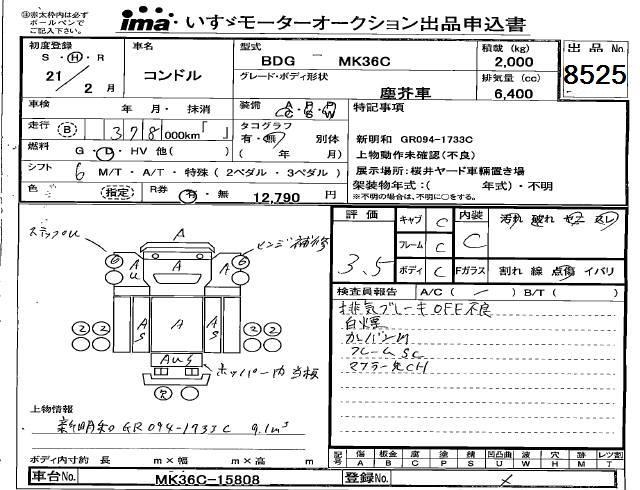 ※赤太枠内は必ず
ボールペンで
ご記入下さい。
ima いすゞモーターオークション出品申込書
初度登録
S・H・R
21 / 2 月
車名
コンドル
型式
BDG － MK36C
グレード・ボディ形状
塵芥車
積載 (kg)
2,000
排気量 (cc)
6,400
出品No.
8525
車検 年・月・抹消
走行 B 378,000km「 」
燃料 G・D・HV 他( )
シフト 6 M/T・A/T・特殊(2ペダル・3ペダル)
色 (指定) R券 有・無 12,790 円
装備 A/C P/S P/W
タコグラフ
有・無 別体
( 年/ 月)
特記事項
新明和 GR094-1733C
上物動作未確認(不良)
展示場所:桜井ヤード車輌置き場
架装物年式:( 年式)・不明
※不明の場合は、不明に○をする。
評価
3.5
キャブ C
フレーム C
ボディ C
内装 C
汚れ 破れ
Fガラス 割れ 線 点傷 イバリ
検査員報告 A/C ( ) B/T ( )
排気ブレーキOFF不良
白煙
フレームSC
マフラー欠CH
ステップU
A
6
A
U
A
A
6
2
2
A
S
A
A
S
2
2
AUS
ホッパー内当板
欠
上物情報
新明和 GR094-1733C 9.1m³
ボディ内寸約 長 m×幅 m×高 m
記号 傷 A 板金 B 腐 C 塗 P 錆 S 凹凸曲 U 波 W 穴 H 跡 M レンズ割 T
車台No. MK36C-15808
登録No.